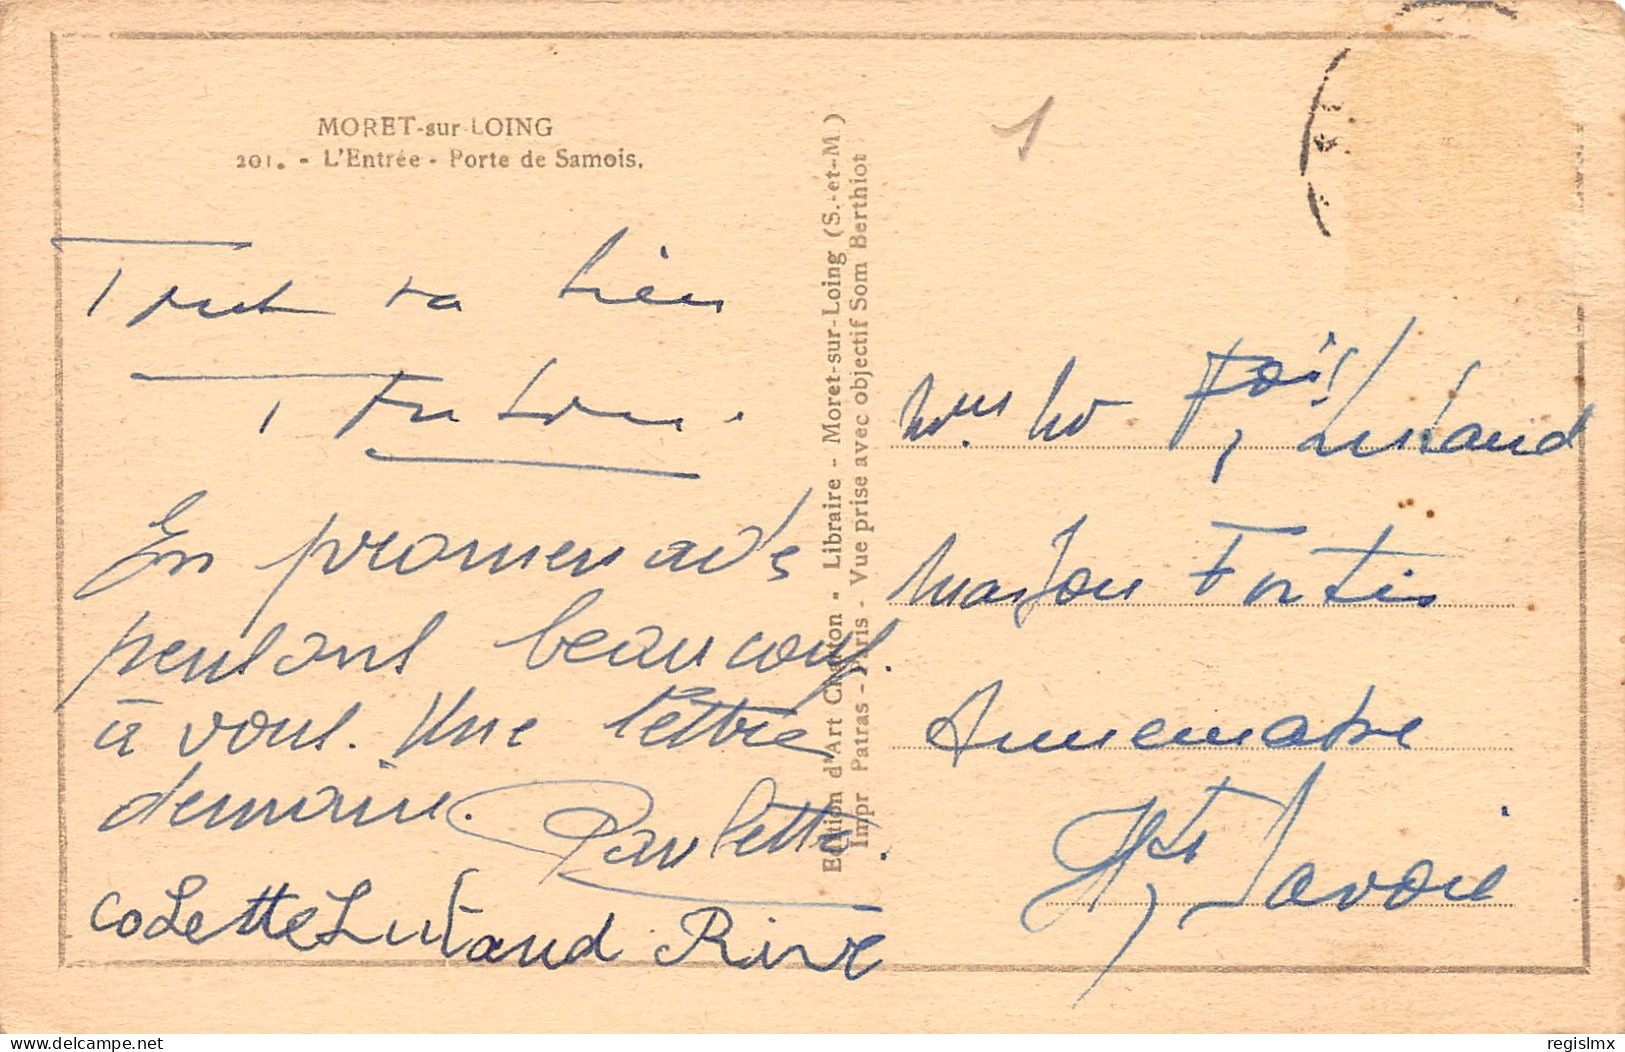 MORET-sur-LOING
201. - L'Entrée - Porte de Samois.
Tout va bien
En promenade
pensons beaucoup
à vous. Une lettre
demain. Paulette.
Colette Lutaud Rive
Edition d'Art - Libraire - Moret-sur-Loing (S.-et-M.)
Impr Patras - Paris - Vue prise avec objectif Som Berthiot
1
Lutaud
Maison Fortis
Annemasse
Hte Savoie
delcampe.net
regislmx